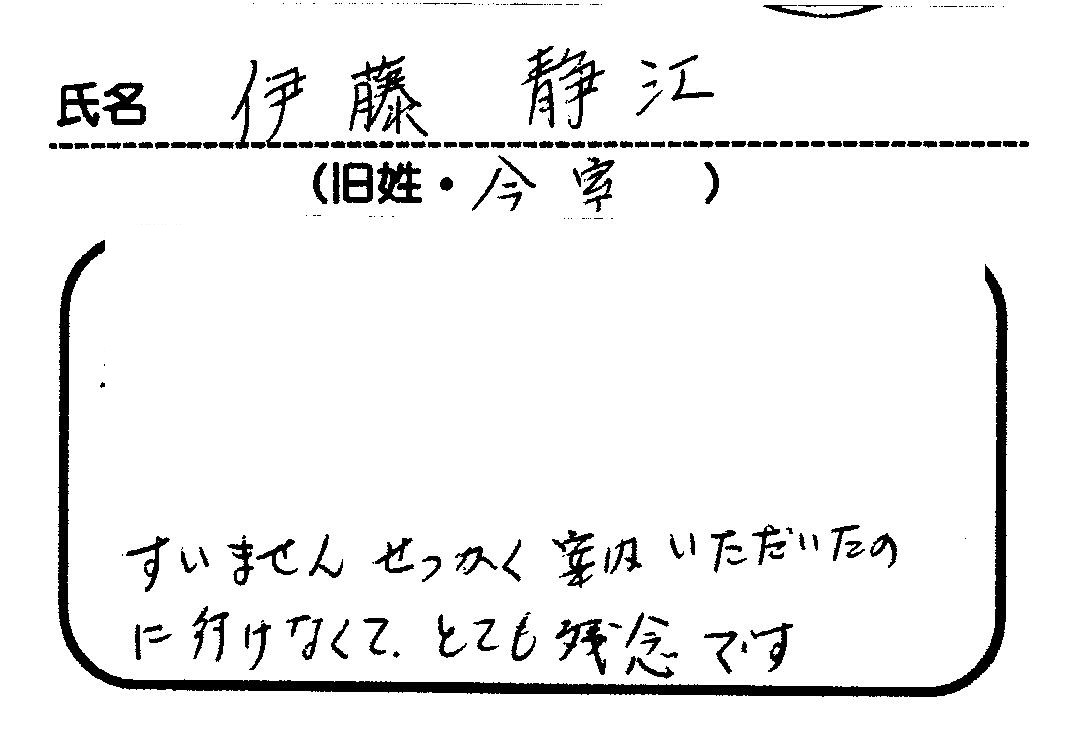 氏名 伊藤 静江
(旧姓・今室 )
すいません せっかく案内いただいたの
に行けなくて. とても残念です